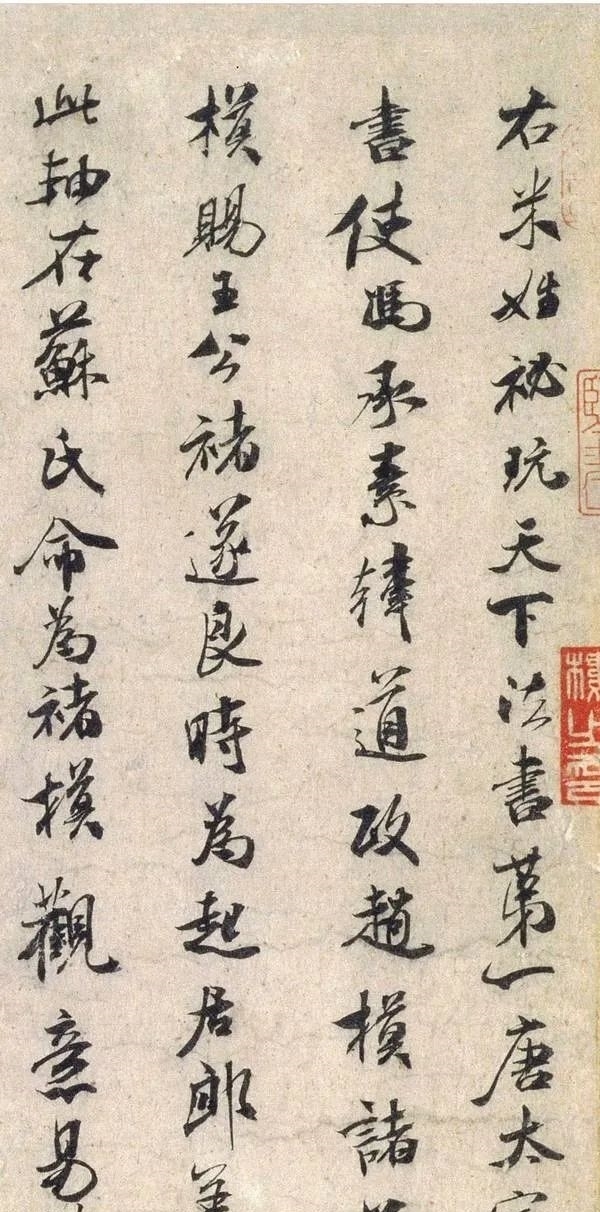 右米姓秘玩天下法書第一唐太宗
書使馮承素韓道政趙模諸
模賜王公褚遂良時為起居郎
此軸在蘇氏命為褚模觀意易